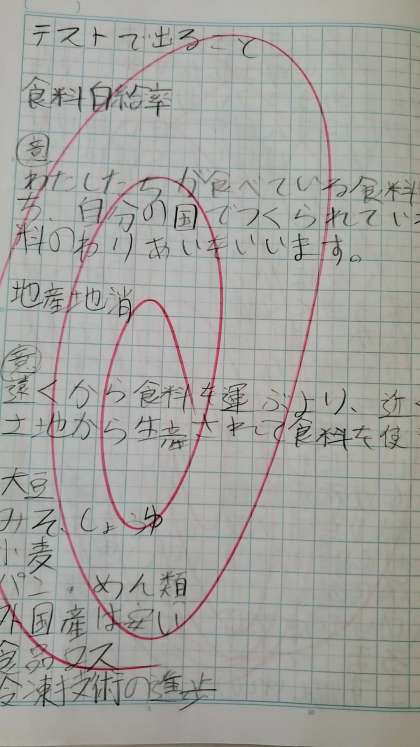 テストで出ること
食料自給率
わたしたちが食べている食料
ち、自分の国でつくられてい
料のわりあいをいいます。
地産地消
遠くから食料を運ぶより、近
土地から生産されて食料を使
大豆
みそ、しょうゆ
小麦
パン・めん類
外国産は安い
食品ロス
冷凍技術の進歩